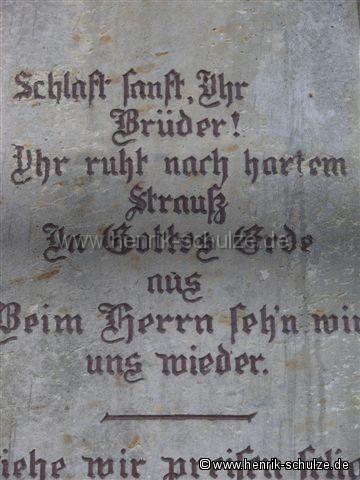 Schlaft sanft, Ihr
Brüder!
Ihr ruht nach hartem
Strauß
In Gottes Erde
www.henrik-schulze.de
aus
Beim Herrn seh'n wir
uns wieder.
iehe wir preisen selig
© www.henrik-schulze.de